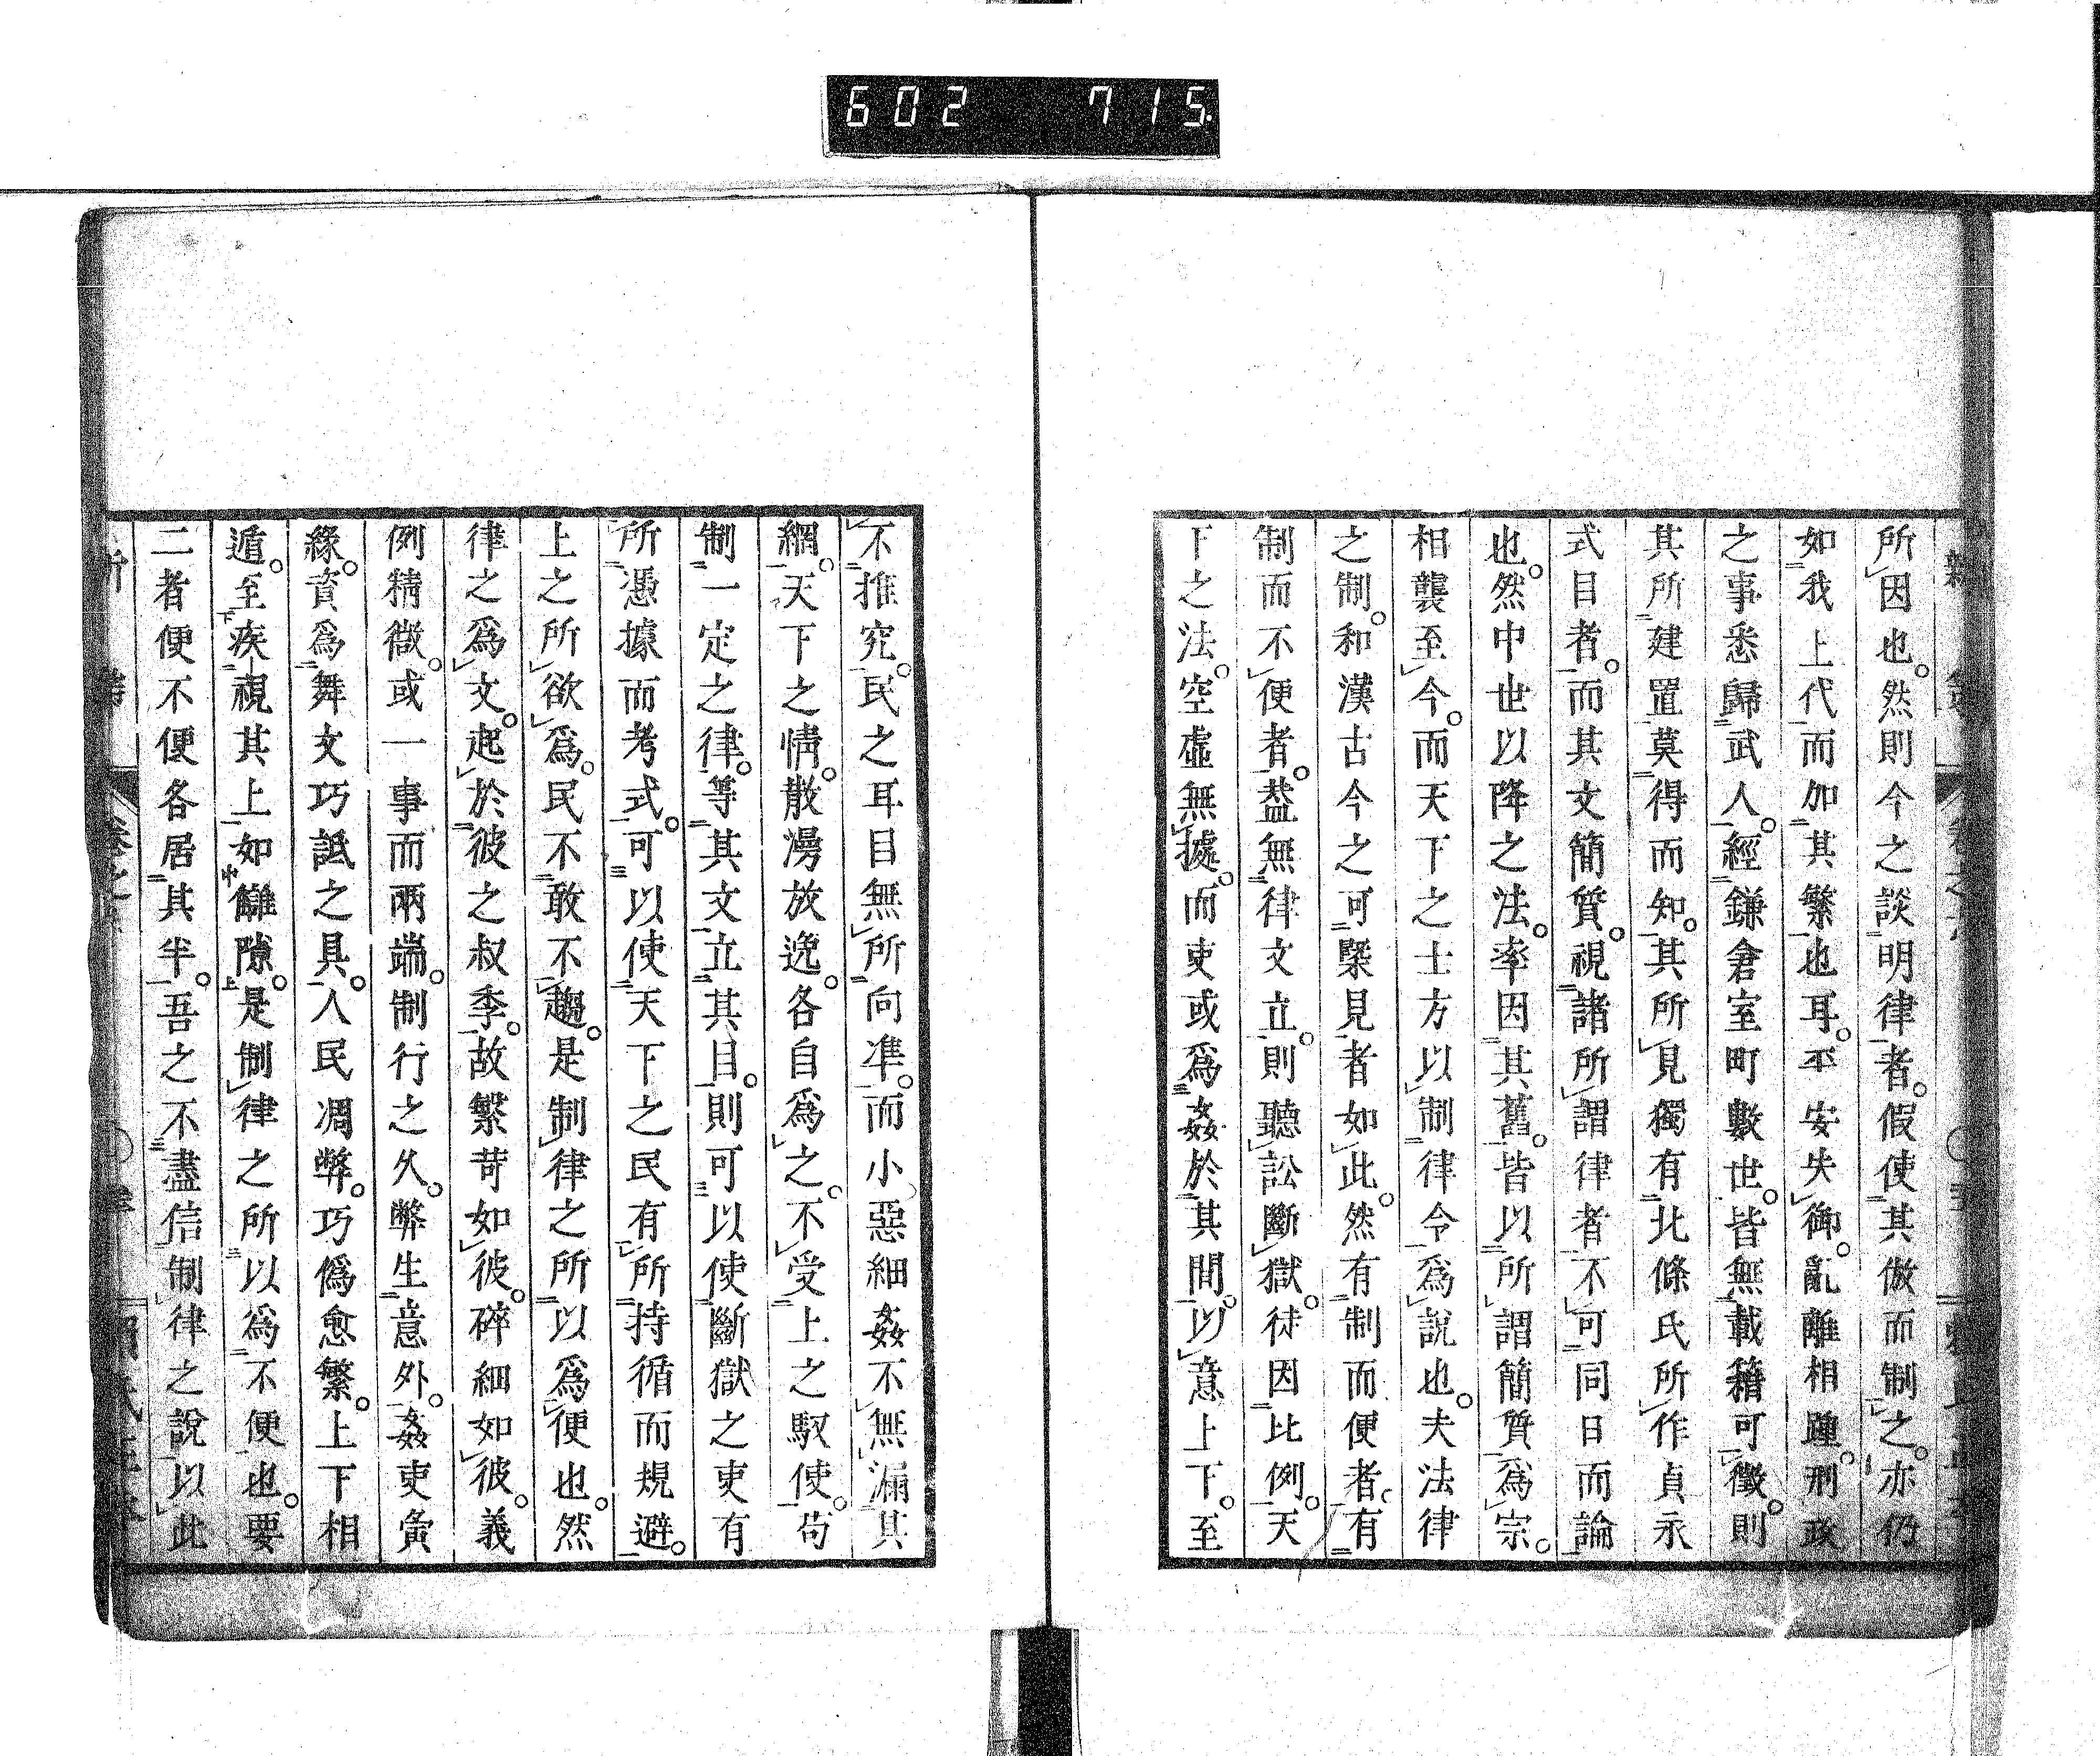 602 715.
所因也。然則今之談明律者。假使其倣而制之。亦仍
如我上代而加其繁也耳。平安失御。亂離相踵。刑政
之事悉歸武人。經鎌倉室町數世。皆無載籍可徵。則
其所建置莫得而知。其所見獨有北條氏所作貞永
式目者。而其文簡質。視諸所謂律者不可同日而論
也。然中世以降之法。率因其舊。皆以所謂簡質爲宗。
相襲至今。而天下之士方以制律令爲說也。夫法律
之制。和漢古今之可槩見者如此。然有制而便者。有
制而不便者。蓋無律文立。則聽訟斷獄。徒因比例。天
下之法。空虛無據。而吏或爲姦於其間。以意上下。至
不推究。民之耳目無所向準。而小惡細姦不無漏其
網。天下之情。散漫放逸。各自爲之。不受上之馭使。苟
制一定之律。等其文立其目。則可以使斷獄之吏有
所憑據而考式。可以使天下之民有所持循而規避。
上之所欲爲。民不敢不趨。是制律之所以爲便也。然
律之爲文。起於彼之叔季。故繁苛如彼。碎細如彼。義
例精微。或一事而兩端。制行之久。弊生意外。姦吏夤
緣。資爲舞文巧詆之具。人民凋弊。巧僞愈繁。上下相
遁。至疾視其上如讎隙。是制律之所以爲不便也。要
二者便不便各居其半。吾之不盡信制律之說以此